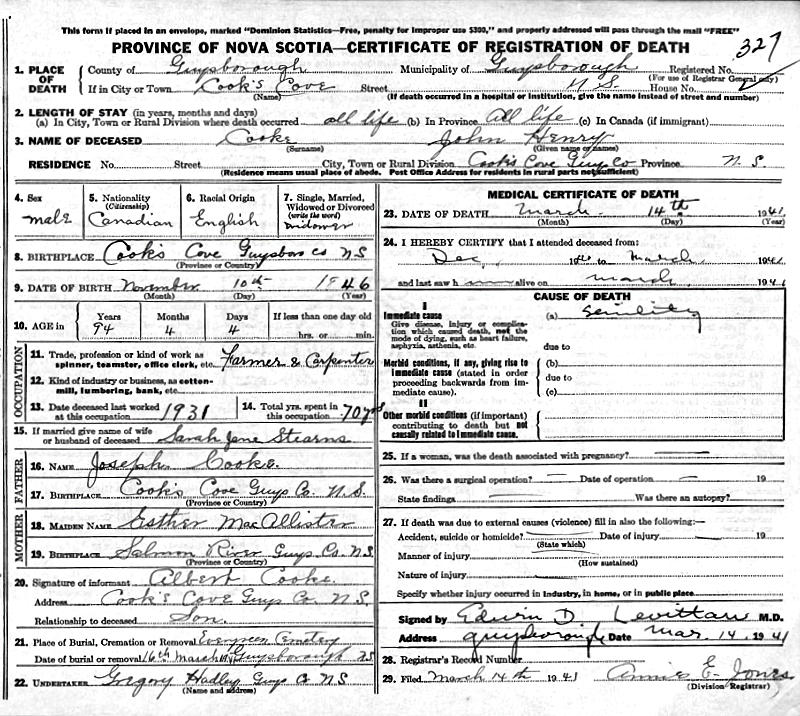 This form if placed in an envelope, marked "Dominion Statistics—Free, penalty for improper use $300," and properly addressed will pass through the mail "FREE"
PROVINCE OF NOVA SCOTIA—CERTIFICATE OF REGISTRATION OF DEATH
327
1. PLACE OF DEATH County of Guysborough Municipality of Guysborough Registered No.
(For use of Registrar General only)
If in City or Town Cook's Cove Street N S House No.
(Name) (If death occurred in a hospital or institution, give the name instead of street and number)
2. LENGTH OF STAY (in years, months and days)
(a) In City, Town or Rural Division where death occurred all life (b) In Province All life (c) In Canada (if immigrant)
3. NAME OF DECEASED Cooke John Henry
(Surname) (Given name or names)
RESIDENCE No. Street City, Town or Rural Division Cook's Cove Guys Co Province N. S.
(Residence means usual place of abode. Post Office Address for residents in rural parts not sufficient)
4. Sex male
5. Nationality (Citizenship) Canadian
6. Racial Origin English
7. Single, Married, Widowed or Divorced (write the word) widower
8. BIRTHPLACE Cook's Cove Guysboro Co NS
(Province or Country)
9. DATE OF BIRTH November 10th 1846
(Month) (Day) (Year)
10. AGE in Years 94 Months 4 Days 4 If less than one day old hrs. or min.
OCCUPATION
11. Trade, profession or kind of work as spinner, teamster, office clerk, etc. Farmer & Carpenter
12. Kind of industry or business, as cotton-mill, lumbering, bank, etc.
13. Date deceased last worked at this occupation 1931
14. Total yrs. spent in this occupation 70 yrs
15. If married give name of wife or husband of deceased Sarah Jane Stearns
FATHER
16. NAME Joseph Cooke.
17. BIRTHPLACE Cook's Cove Guys Co. N. S.
(Province or Country)
MOTHER
18. MAIDEN NAME Esther MacAllister
19. BIRTHPLACE Salmon River Guys Co. N S
(Province or Country)
20. Signature of informant Albert Cooke.
Address Cook's Cove Guys Co. N. S.
Relationship to deceased Son.
21. Place of Burial, Cremation or Removal Evergreen Cemetery
Date of burial or removal 16th March Guysborough NS
22. UNDERTAKER Gregory Hadley Guys Co N S
(Name and address)
MEDICAL CERTIFICATE OF DEATH
23. DATE OF DEATH March 14th 1941
(Month) (Day) (Year)
24. I HEREBY CERTIFY that I attended deceased from:
Dec, to March, 1941
and last saw h alive on March 1941
CAUSE OF DEATH
I
Immediate cause
Give disease, injury or complication which caused death, not the mode of dying, such as heart failure, asphyxia, asthenia, etc.
(a) Senility
due to
Morbid conditions, if any, giving rise to immediate cause (stated in order proceeding backwards from immediate cause).
(b)
due to
(c)
II
Other morbid conditions (if important) contributing to death but not causally related to immediate cause.
25. If a woman, was the death associated with pregnancy?
26. Was there a surgical operation? Date of operation 19
State findings Was there an autopsy?
27. If death was due to external causes (violence) fill in also the following:—
Accident, suicide or homicide? Date of injury 19
(State which)
Manner of injury
(How sustained)
Nature of injury
Specify whether injury occurred in industry, in home, or in public place
Signed by Edwin D. M.D.
Address Guysborough Date Mar. 14. 1941
28. Registrar's Record Number
29. Filed March 14th 1941 Annie E. Jones
(Division Registrar)